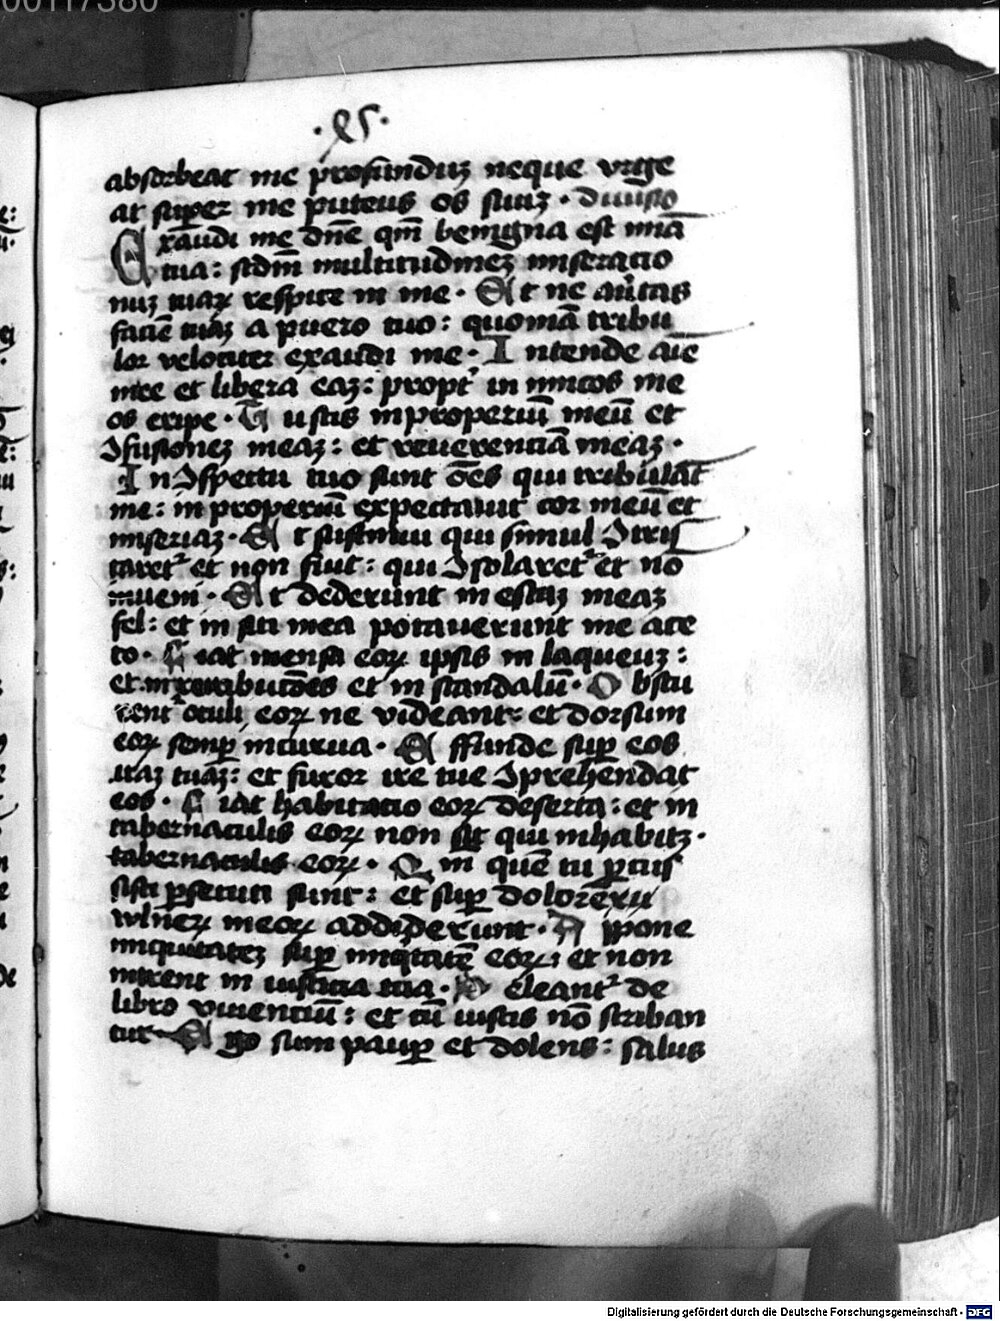 00117380
absorbeat me profunduꝫ neque vrge
at super me puteus os suuꝫ · diuisio
Exaudi me dn̄e qm̄ benigna est mīa
tua : scd̄m multitudineꝫ miseratio
nuꝫ tuaꝝ respice in me · Et ne au̓tas
faciē tuaꝫ a puero tuo : quoniā tribu
lor velociter exaudi me · Intende aīe
mee et libera eaꝫ : propt̓ inimicos me
os eripe · Tu scis inproperiū meū et
ↄfusioneꝫ meaꝫ : et reuerentiā meaꝫ ·
In ↄspectu tuo sunt ōēs qui tribulāt
me : inproperiū expectauit cor meū et
miseriaꝫ · Et sustinui qui simul ↄtris
taret᷑ et non fuit : qui ↄsolaret᷑ et nō
inueni · Et dederunt in escaꝫ meaꝫ
fel : et in siti mea potauerunt me ace
to · Fiat mensa eoꝝ ipsis in laqueuꝫ :
et in retributōēs et in scandalū · Obscu
rent᷑ oculi eoꝝ ne videant : et dorsum
eoꝝ semp̲ incurua · Effunde sup̲ eos
iraꝫ tuaꝫ : et furor ire tue ↄprehendat
eos · Fiat habitatio eoꝝ deserta : et in
tabernaculis eoꝝ non sit qui inhabitꝫ ·
tabernaculis eoꝝ · Qm̄ quē tu p̲cus
sisti p̲secuti sunt : et sup̲ dolorē
vuln̄eꝝ meoꝝ addiderunt · Appone
iniquitateꝫ sup̲ iniq̇tatē eoꝝ : et non
intrent in iusticia tua · Deleant᷑ de
libro viuentiū : et cū iustis nō scriban
tur · Ego sum paup̲ et dolens : salus
Digitalisierung gefördert durch die Deutsche Forschungsgemeinschaft - DFG